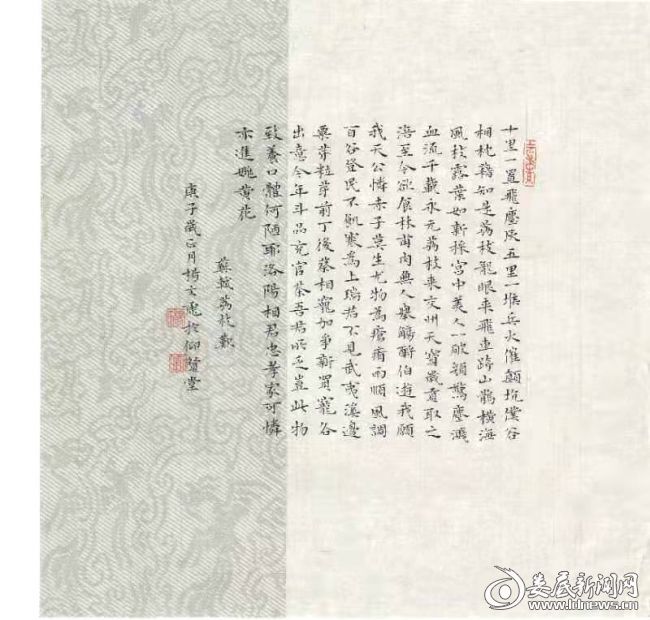 十里一置飛塵灰五里一堠兵火催顛坑僕谷
相枕藉知是荔枝龍眼來飛車跨山鶻橫海
風枝露葉如新採宮中美人一破顏驚塵濺
血流千載永元荔枝來交州天寶歲貢取之
涪至今欲食林甫肉無人舉觴酹伯游我願
我天公憐赤子莫生尤物為瘡痏雨順風調
百谷登民不飢寒為上瑞君不見武夷溪邊
粟芽粒芽前丁後蔡相寵加爭新買寵各
出意今年斗品充官茶吾君所乏豈此物
致養口體何陋耶洛陽相君忠孝家可憐
亦進姚黃花
蘇軾荔枝歎
庚子歲正月楊文於仰堂
娄底新闻网
www.ldnews.cn